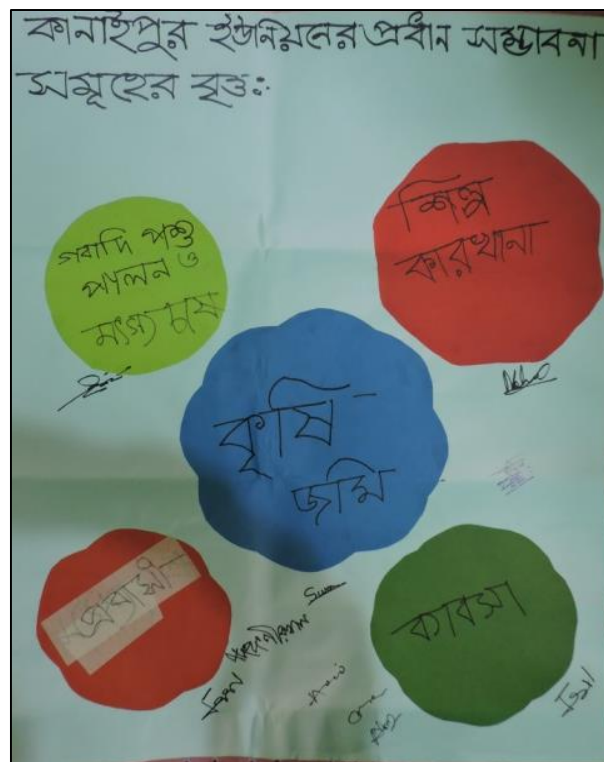 কানাইপুর ইউনিয়নের প্রধান সম্ভাবনা
সমূহের বৃত্তঃ
গবাদি পশু
পালন ও
মৎস্য চাষ
শিল্প
কারখানা
কৃষি
জমি
প্রবাসী
ব্যবসা